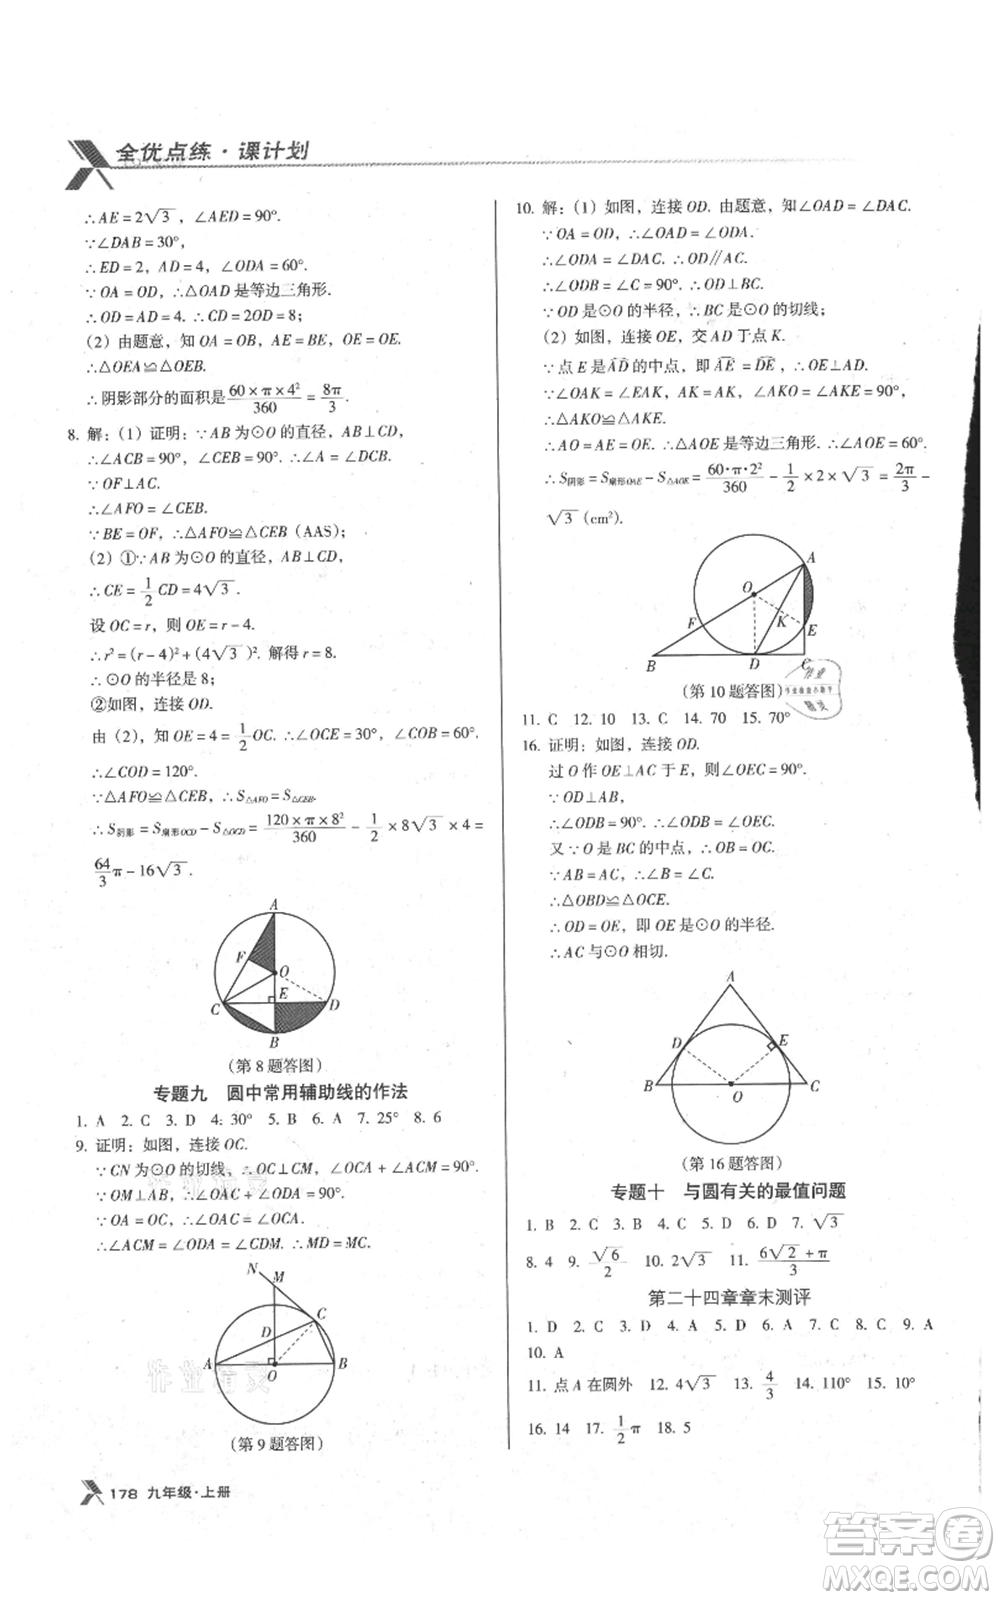 全优点练·课计划
∴AE=2√3，∠AED=90°.
∵∠DAB=30°，
∴ED=2，AD=4，∠ODA=60°.
∵OA=OD，∴△OAD是等边三角形.
∴OD=AD=4. ∴CD=2OD=8；
(2) 由题意，知OA=OB，AE=BE，OE=OE.
∴△OEA≌△OEB.
∴阴影部分的面积是60×π×4²/360=8π/3.
8. 解：(1) 证明：∵AB为⊙O的直径，AB⊥CD，
∴∠ACB=90°，∠CEB=90°. ∴∠A=∠DCB.
∵OF⊥AC.
∴∠AFO=∠CEB.
∵BE=OF，∴△AFO≌△CEB (AAS)；
(2) ①∵AB为⊙O的直径，AB⊥CD，
∴CE=1/2CD=4√3.
设OC=r，则OE=r-4.
∴r²=(r-4)²+(4√3)². 解得r=8.
∴⊙O的半径是8；
②如图，连接OD.
由 (2)，知OE=4=1/2OC. ∴∠OCE=30°，∠COB=60°.
∴∠COD=120°.
∵△AFO≌△CEB，∴S△AFO=S△CEB.
∴S阴影=S扇形OCD-S△OCD=120×π×8²/360-1/2×8√3×4=
64/3π-16√3.
A
F
O
C
E
D
B
(第8题答图)
专题九 圆中常用辅助线的作法
1. A 2. C 3. D 4. 30° 5. B 6. A 7. 25° 8. 6
9. 证明：如图，连接OC.
∵CN为⊙O的切线，∴OC⊥CM，∠OCA+∠ACM=90°.
∵OM⊥AB，∴∠OAC+∠ODA=90°.
∵OA=OC，∴∠OAC=∠OCA.
∴∠ACM=∠ODA=∠CDM. ∴MD=MC.
N
M
C
D
A
O
B
(第9题答图)
178 九年级·上册
10. 解：(1) 如图，连接OD. 由题意，知∠OAD=∠DAC.
∵OA=OD，∴∠OAD=∠ODA.
∴∠ODA=∠DAC. ∴OD∥AC.
∴∠ODB=∠C=90°. ∴OD⊥BC.
∵OD是⊙O的半径，∴BC是⊙O的切线；
(2) 如图，连接OE，交AD于点K.
∵点E是AD的中点，即AE=DE，∴OE⊥AD.
∵∠OAK=∠EAK，AK=AK，∠AKO=∠AKE=90°，
∴△AKO≌△AKE.
∴AO=AE=OE. ∴△AOE是等边三角形. ∴∠AOE=60°.
∴S阴影=S扇形OAE-S△AOE=60·π·2²/360-1/2×2×√3=2π/3-
√3 (cm²).
A
O
F
K
E
B
D
C
(第10题答图)
11. C 12. 10 13. C 14. 70 15. 70°
16. 证明：如图，连接OD.
过O作OE⊥AC于E，则∠OEC=90°.
∵OD⊥AB，
∴∠ODB=90°. ∴∠ODB=∠OEC.
又∵O是BC的中点，∴OB=OC.
∵AB=AC，∴∠B=∠C.
∴△OBD≌△OCE.
∴OD=OE，即OE是⊙O的半径.
∴AC与⊙O相切.
A
D
E
B
O
C
(第16题答图)
专题十 与圆有关的最值问题
1. B 2. C 3. B 4. C 5. D 6. D 7. √3
8. 4 9. √6/2 10. 2√3 11. (6√2+π)/3
第二十四章章末测评
1. D 2. C 3. D 4. A 5. D 6. B 7. C 8. C 9. A
10. A
11. 点A在圆外 12. 4√3 13. 4/3 14. 110° 15. 10°
16. 14 17. 1/2π 18. 5
答案卷
MXQE.COM
作业精灵